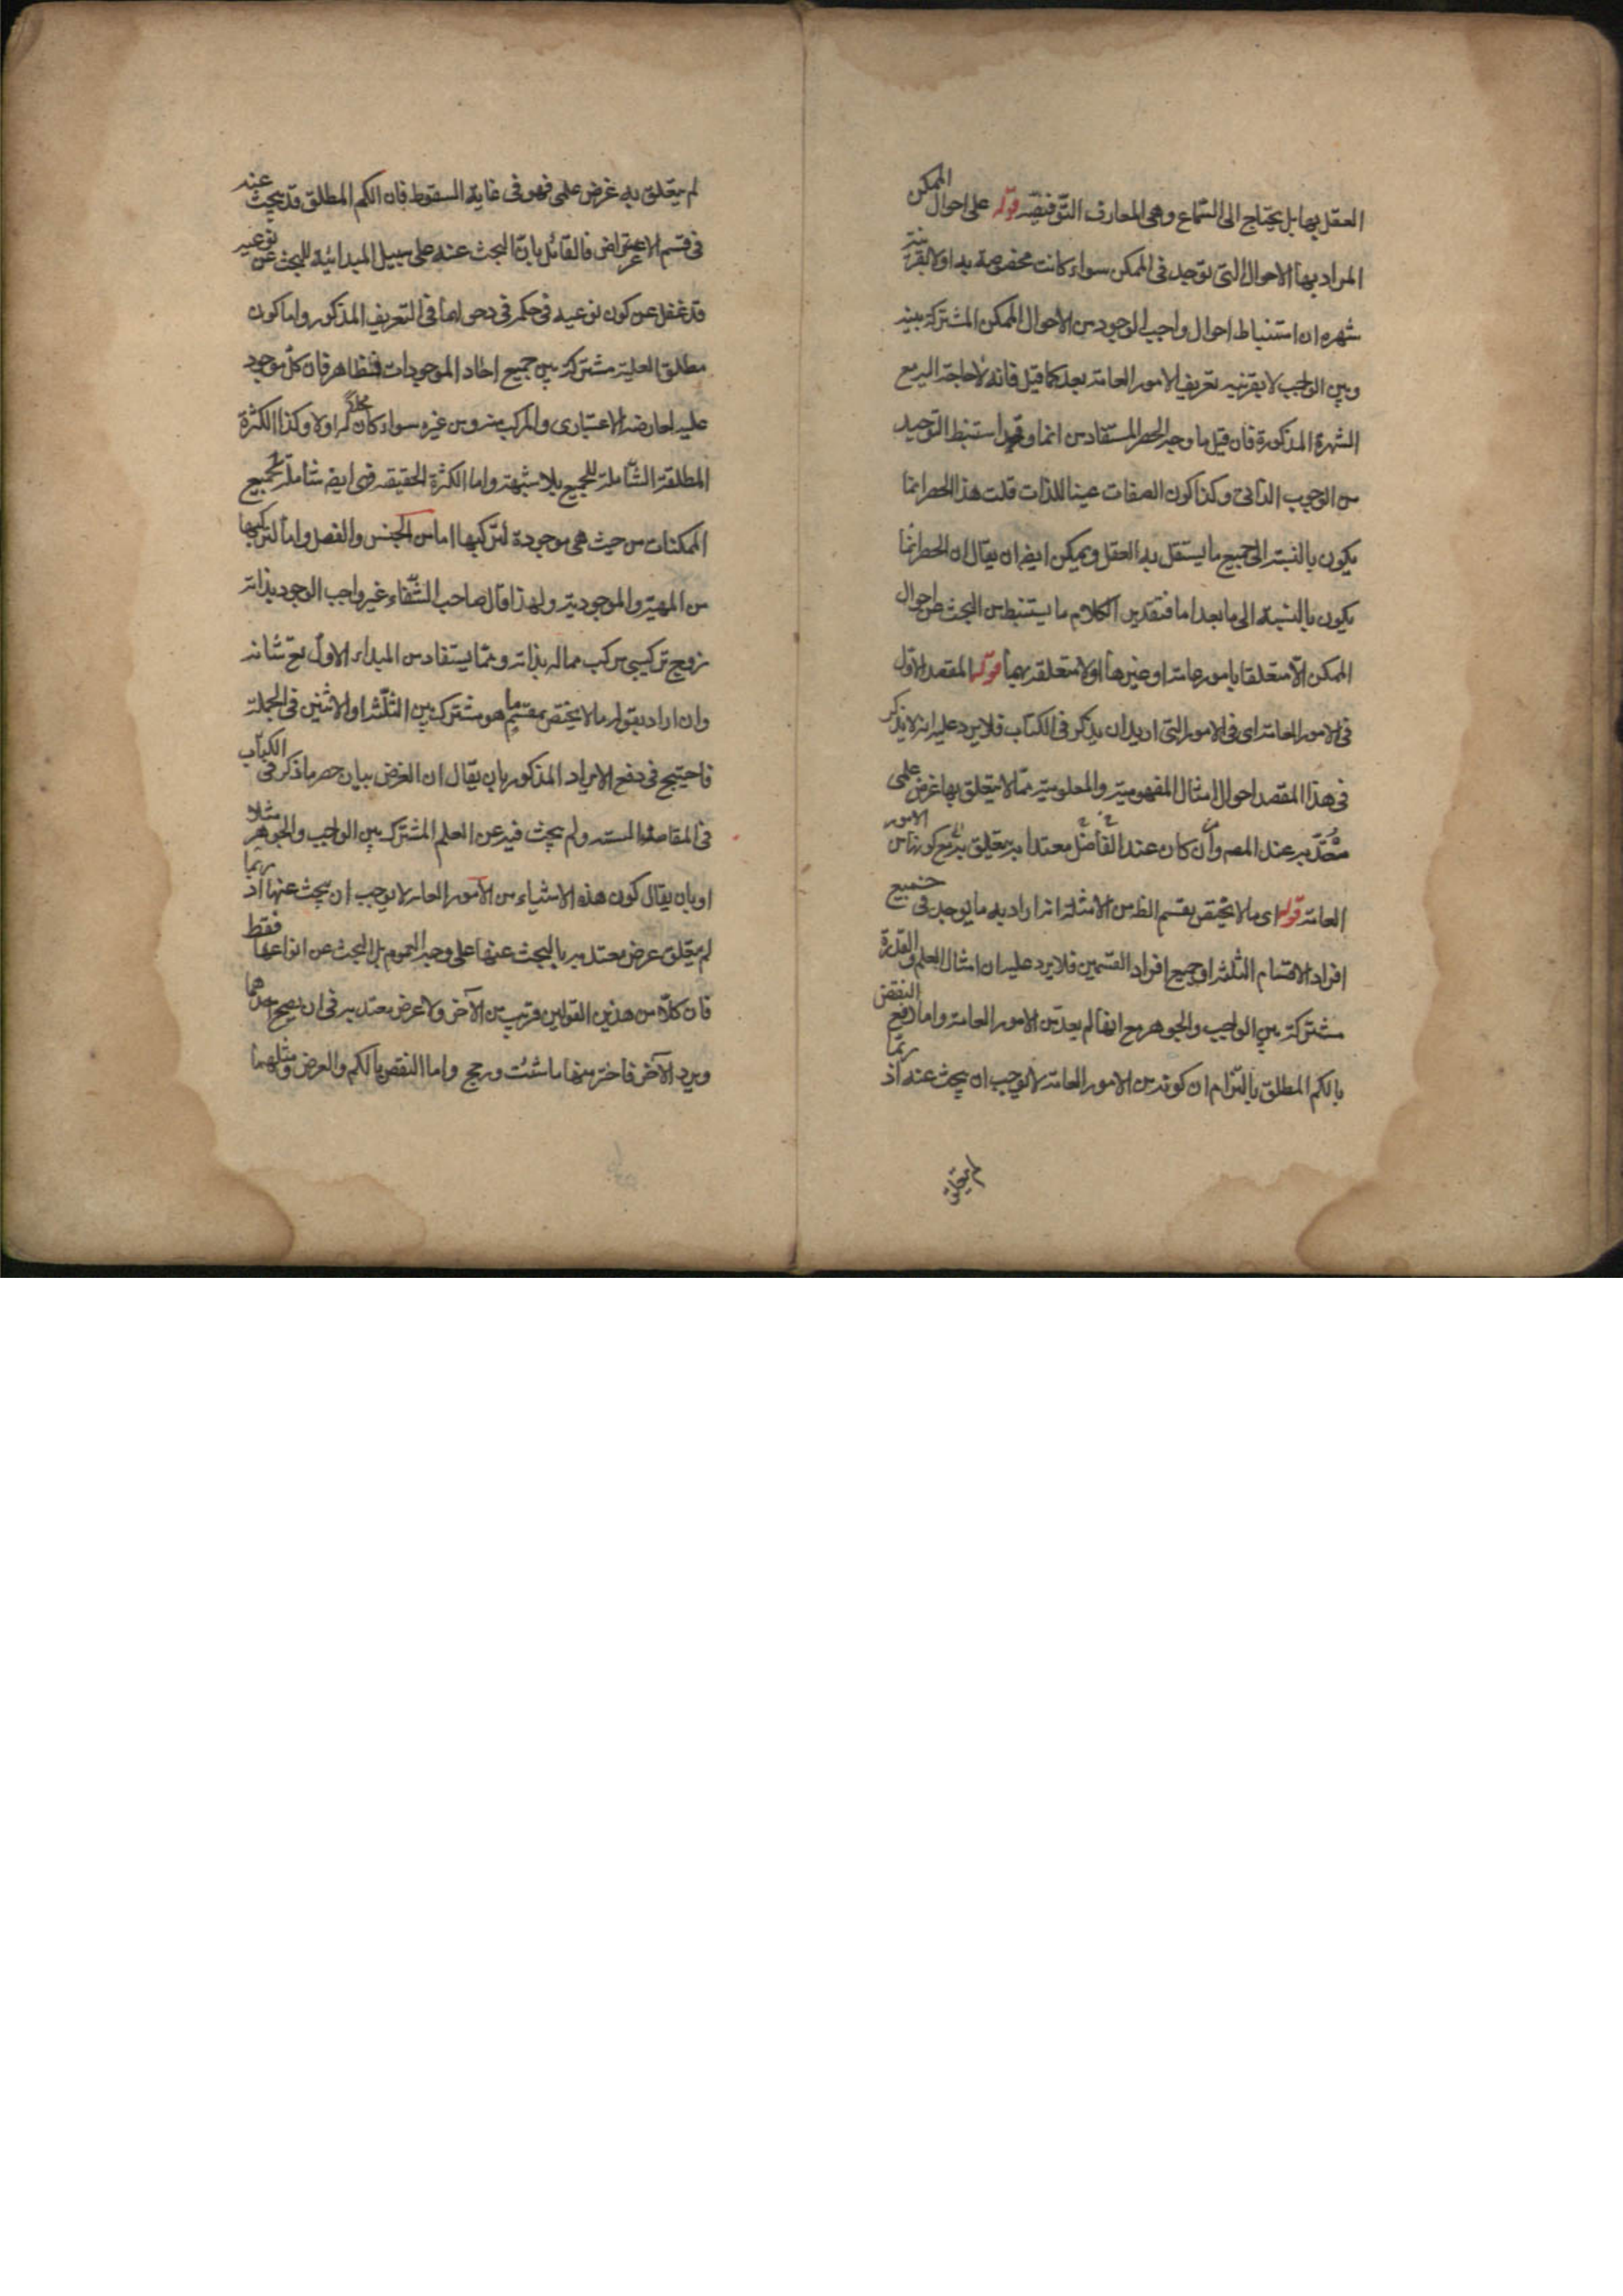 العقل بها بل يحتاج الى السماع وهى المعارف التوقيفيه قوله على احوال الممكن
المراد بها الاحوال التى توجد فى الممكن سواء كانت مخصوصة به اولا بقرينة
شهره ان استنباط احوال واجب الوجود من الاحوال الممكن المشتركة بينه
وبين الواجب لا بقرنيه تعريف الامور العامة بعد كما قيل فانه لا حاجة اليه مع
الشهرة المذكورة فان قيل ما وجه الحصر المستفاد من انما وقد استنبط التوحيد
من الوجوب الذاتى وكذا كون الصفات عينا للذات قلت هذا الحصر انما
يكون بالنسبة الى جميع ما يستقل به العقل ويمكن ايض ان يقال ان الحصر انما
يكون بالنسبة الى ما بعد اما فتقدير الكلام ما يستنبط من البحث عن احوال
الممكن الا متعلقا بامور عامة او غيرها اولا متعلقة بهما قوله المقصد الاول
فى الامور العامة اى فى الامور التى اريد ان يذكر فى الكتاب فلا يرد عليه انه لا يذكر
فى هذا المقصد احوال امثال المفهومية والمعلومية مما لا يتعلق بها غرض علمى
معتد به عند المصه وان كان عند الفاضل معتدا به يتعلق به مع كونها من الامور
العامة قوله اى ما لا يختص بقسم الظ من الامثلة انه اراد به ما يوجد فى جميع
افراد الاقسام الثلثه او جميع افراد القسمين فلا يرد عليه ان امثال العلم والقدرة
مشتركة بين الواجب والجوهر مع انها لم يعد من الامور العامة واما دفع النقض
بالكم المطلق بالتزام ان كونه من الامور العامة لا يوجب ان يبحث عنه اذ ربما
لم يتعلق
لم يتعلق به غرض علمى فهو فى غاية السقوط فان الكم المطلق قد يبحث عنه
فى قسم الاعراض فالقائل بان البحث عنه على سبيل المبدائية للبحث عن نوعيه
قد غفل عن كون نوعيه فى حكمه فى دخولهما فى التعريف المذكور واما كون
مطلق العلية مشتركة بين جميع احاد الموجودات فظاهر فان كل موجود
علية لعارضه الاعتبارى والمركب منه ومن غيره سواء كان محلا له اولا وكذا الكثرة
المطلقة الشاملة للجميع بلا شبهة واما الكثرة الحقيقه فهى ايض شاملة لجميع
الممكنات من حيث هى موجودة لتركيبها اما من الجنس والفصل واما لتركيبها
من المهية والموجودية ولهذا قال صاحب الشفاء غير واجب الوجود بذاته
زوج تركيبى مركب مما له بذاته ومما يستفاد من المبداء الاول تع شانه
وان اراد بقوله ما لا يختص بقسم ما هو مشترك بين الثلثة او الاثنين فى الجملة
فاحتيج فى دفع الايراد المذكور بان يقال ان الغرض بيان حصر ما ذكر فى الكتاب
فى المقاصد الستة ولم يبحث فيه عن العلم المشترك بين الواجب والجوهر مثلا
او بان يقال كون هذه الاشياء من الامور العامه لا يوجب ان يبحث عنها اذ ربما
لم يتعلق غرض معتد به بالبحث عنها على وجه العموم بل البحث عن انواعها فقط
فان كلا من هذين القولين قريب من الآخر ولا غرض معتد به فى ان يصحح احدهما
ويرد الآخر فاختر منها ما شئت ورجح واما النقض بالكم والعرض ومثلهما